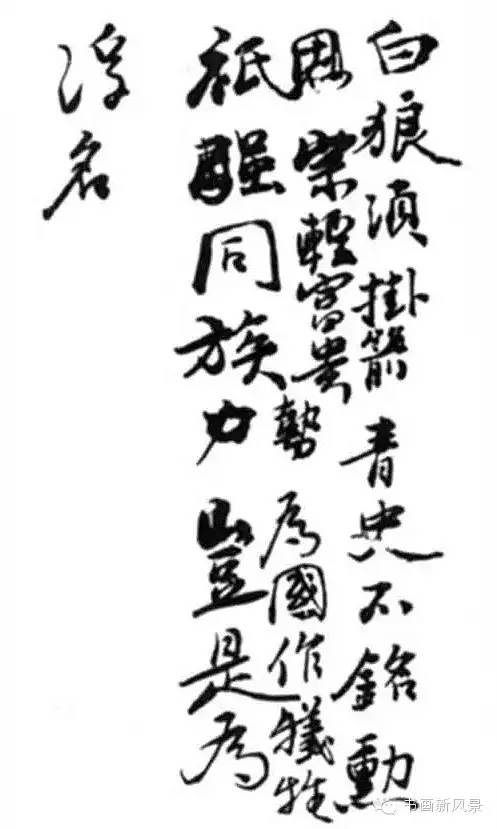 白狼須掛箭青史不銘勳
恩榮輕富貴勢為國作犧牲
祇醌同族力豈是為
浮名
书画新风景